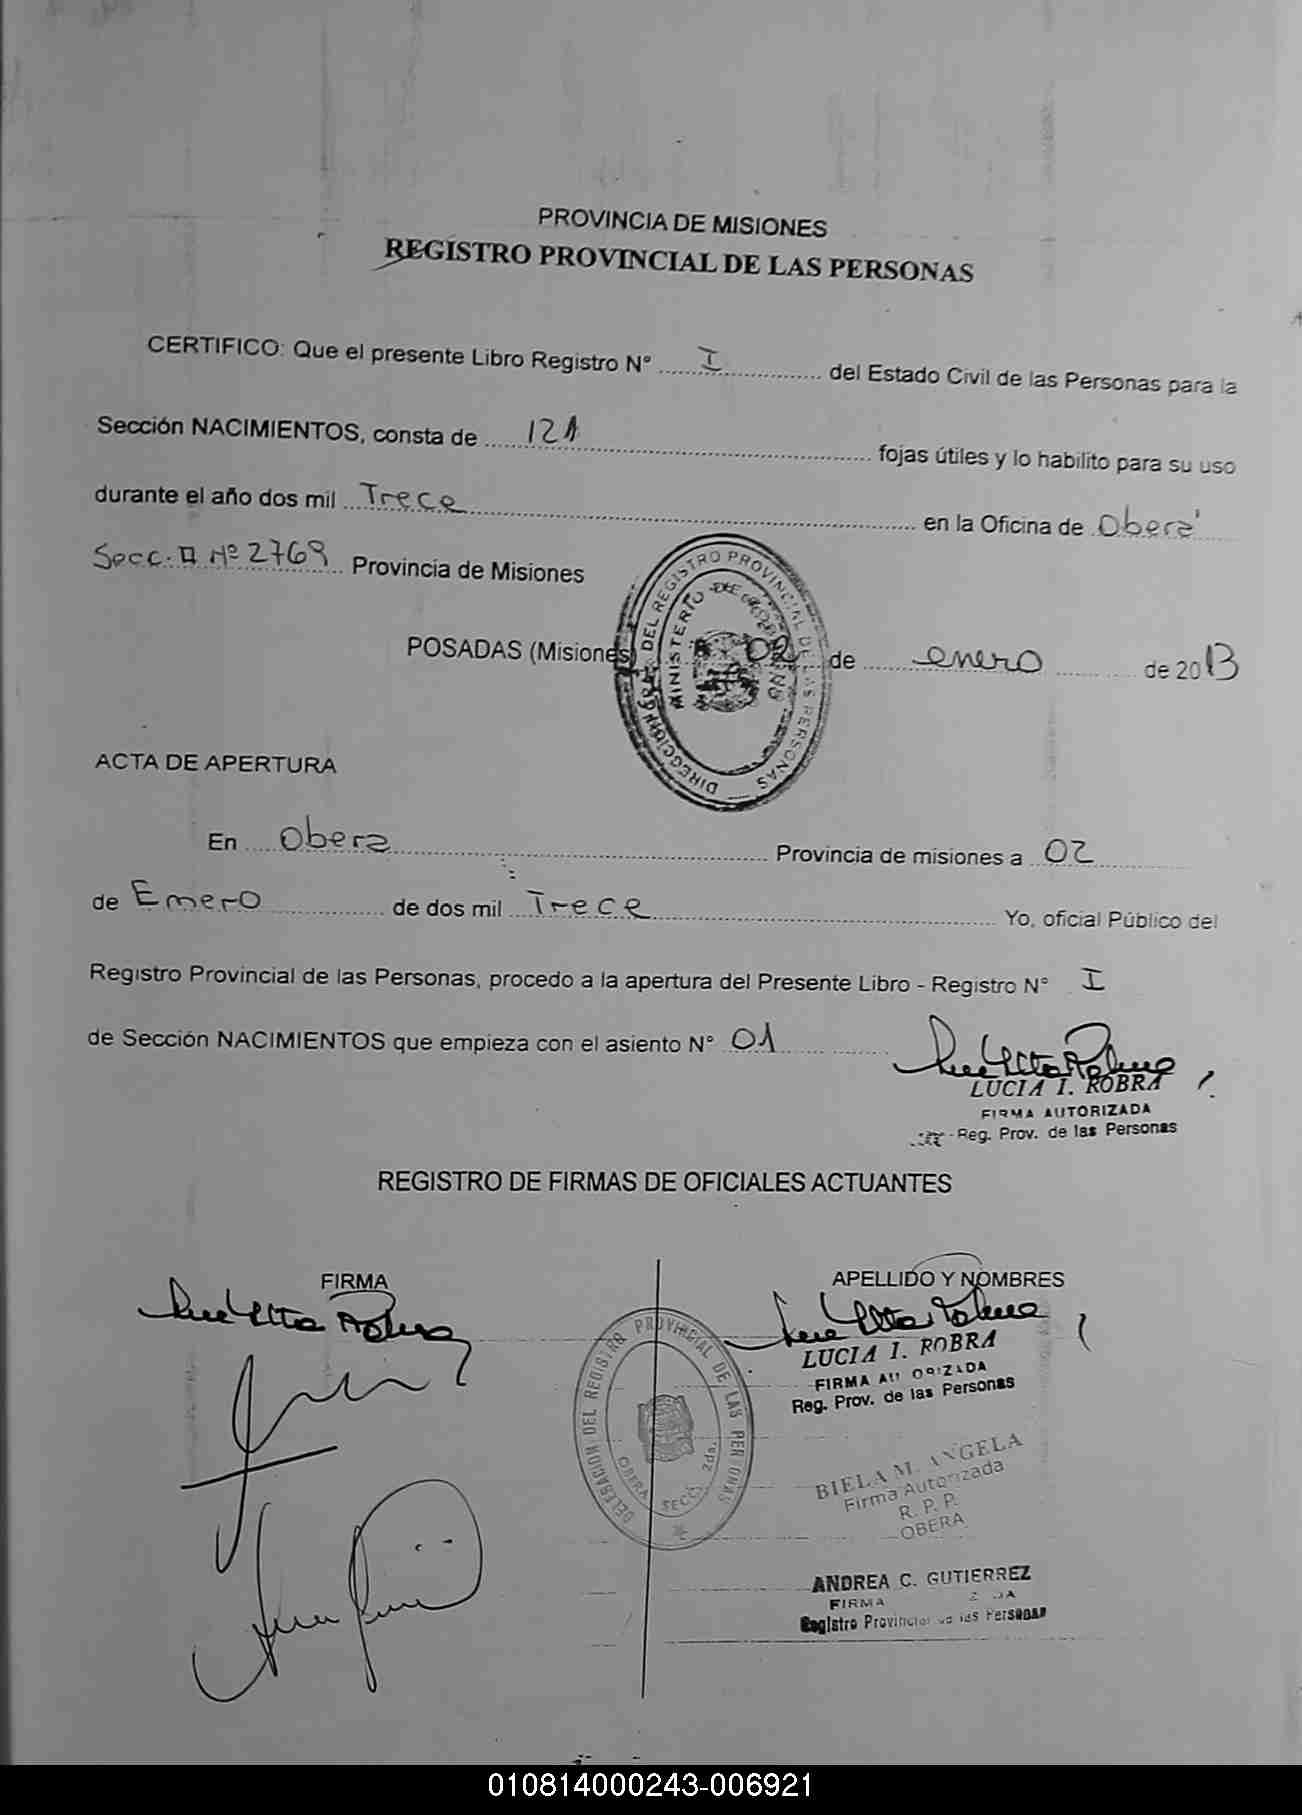 PROVINCIA DE MISIONES
REGISTRO PROVINCIAL DE LAS PERSONAS
CERTIFICO: Que el presente Libro Registro N° I del Estado Civil de las Personas para la
Sección NACIMIENTOS, consta de 121 fojas útiles y lo habilito para su uso
durante el año dos mil Trece en la Oficina de Oberá
Secc: II Nº 2769 Provincia de Misiones
POSADAS (Misiones) 02 de enero de 2013
DIRECCION GRAL DEL REGISTRO PROVINCIAL DE LAS PERSONAS
MINISTERIO DE GOBIERNO
ACTA DE APERTURA
En Obera Provincia de misiones a 02
de Enero de dos mil Trece Yo, oficial Público del
Registro Provincial de las Personas, procedo a la apertura del Presente Libro - Registro N° I
de Sección NACIMIENTOS que empieza con el asiento N° 01
LUCIA I. ROBRA
FIRMA AUTORIZADA
Reg. Prov. de las Personas
REGISTRO DE FIRMAS DE OFICIALES ACTUANTES
FIRMA APELLIDO Y NOMBRES
LUCIA I. ROBRA
FIRMA AUTORIZADA
Reg. Prov. de las Personas
DELEGACION DEL REGISTRO PROVINCIAL DE LAS PERSONAS
OBERA SECC. 2da.
BIELA M. ANGELA
Firma Autorizada
R. P. P.
OBERA
ANDREA C. GUTIERREZ
FIRMA
Registro Provincial de las Personas
010814000243-006921